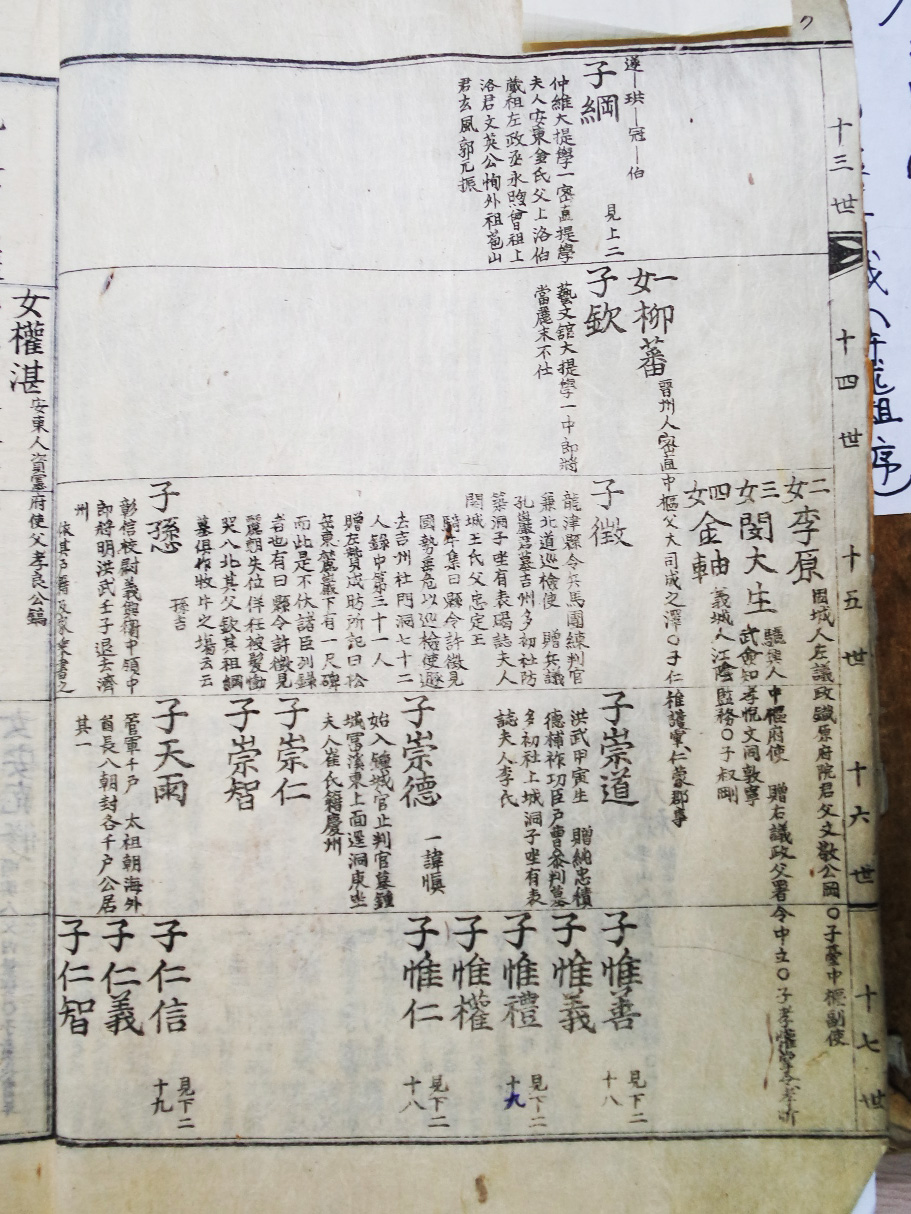 十三世
十四世
十五世
十六世
十七世
蓮—珙—冠—伯
子綱
見上二
仲維大提學一密直提學
夫人安東金氏父上洛伯
蕆祖左政丞永煦曾祖上
洛君文英公恂外祖苞山
君玄風郭元振
一女柳蕃
晋州人密直中樞父大司成之澤○子仁
子欽
藝文館大提學一中郎將
當麗末不仕
二女李原
固城人左議政鐵原府院君父文敬公岡○子臺中樞副使
三女閔大生
驪興人中樞府使 贈右議政父署令中立○子孝
四女金軸
義城人江陰監務○子叔剛
子徵
龍津縣令兵馬團練判官
兼北道巡檢使 贈兵議
孔巖君墓吉州多初社防
築洞子坐有表碣誌夫人
開城王氏父忠定王
騎牛集曰縣令許徵見
國勢垂危以巡檢使遯
去吉州社門洞七十二
人錄中第三十一人
贈左贊成昉所記曰松
岳東麓巖下有一尺碑
而此是不伏諸臣列錄
者也有曰縣令許徵見
麗朝失位佯狂被髮慟
哭入北其父欽其祖綱
墓俱作牧牛之場云云
子孫
孫吉
彰信校尉義興衛中領中
郎將明洪武壬子退去濟
州
子崇道
洪武甲寅生 贈純忠積
德補祚功臣戶曹參判墓
多初社上城洞子坐有表
誌夫人李氏
子崇德
一諱愼
始入鍾城官止判官墓鍾
城富溪東上面還洞庚坐
夫人崔氏籍慶州
子崇仁
子崇智
子天雨
管軍千戶 太祖朝海外
酋長八朝封各千戶公居
其一
子惟善
見下二十八
子惟義
子惟禮
見下二十九
子惟權
子惟仁
見下二十八
子仁信
見下二十九
子仁義
子仁智
女權湛
安東人資憲府使父孝良公鎬